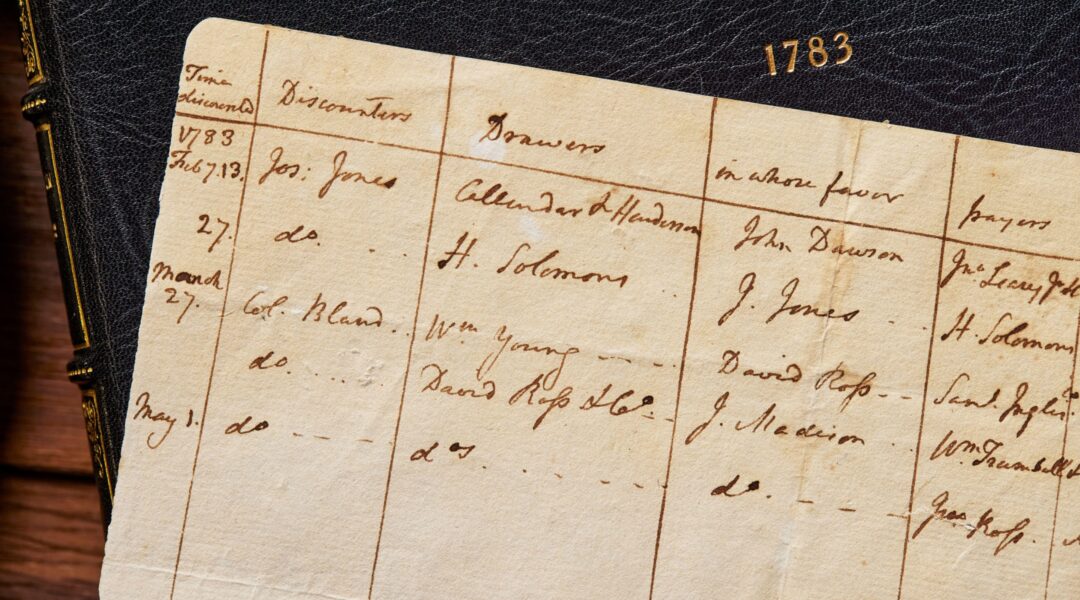 1783
Time discounted Discounters Drawers in whose favor payers
1783
Feb 7.13. Jos: Jones Callendar & Henderson John Dawson Jno Leary Jr
27. do. H. Solomons J. Jones H. Solomons
March 27. Col. Bland Wm Young David Ross Saml. Inglis
do. David Ross & Co. J. Madison Wm Turnbull &
May 1. do dos do. Ross.